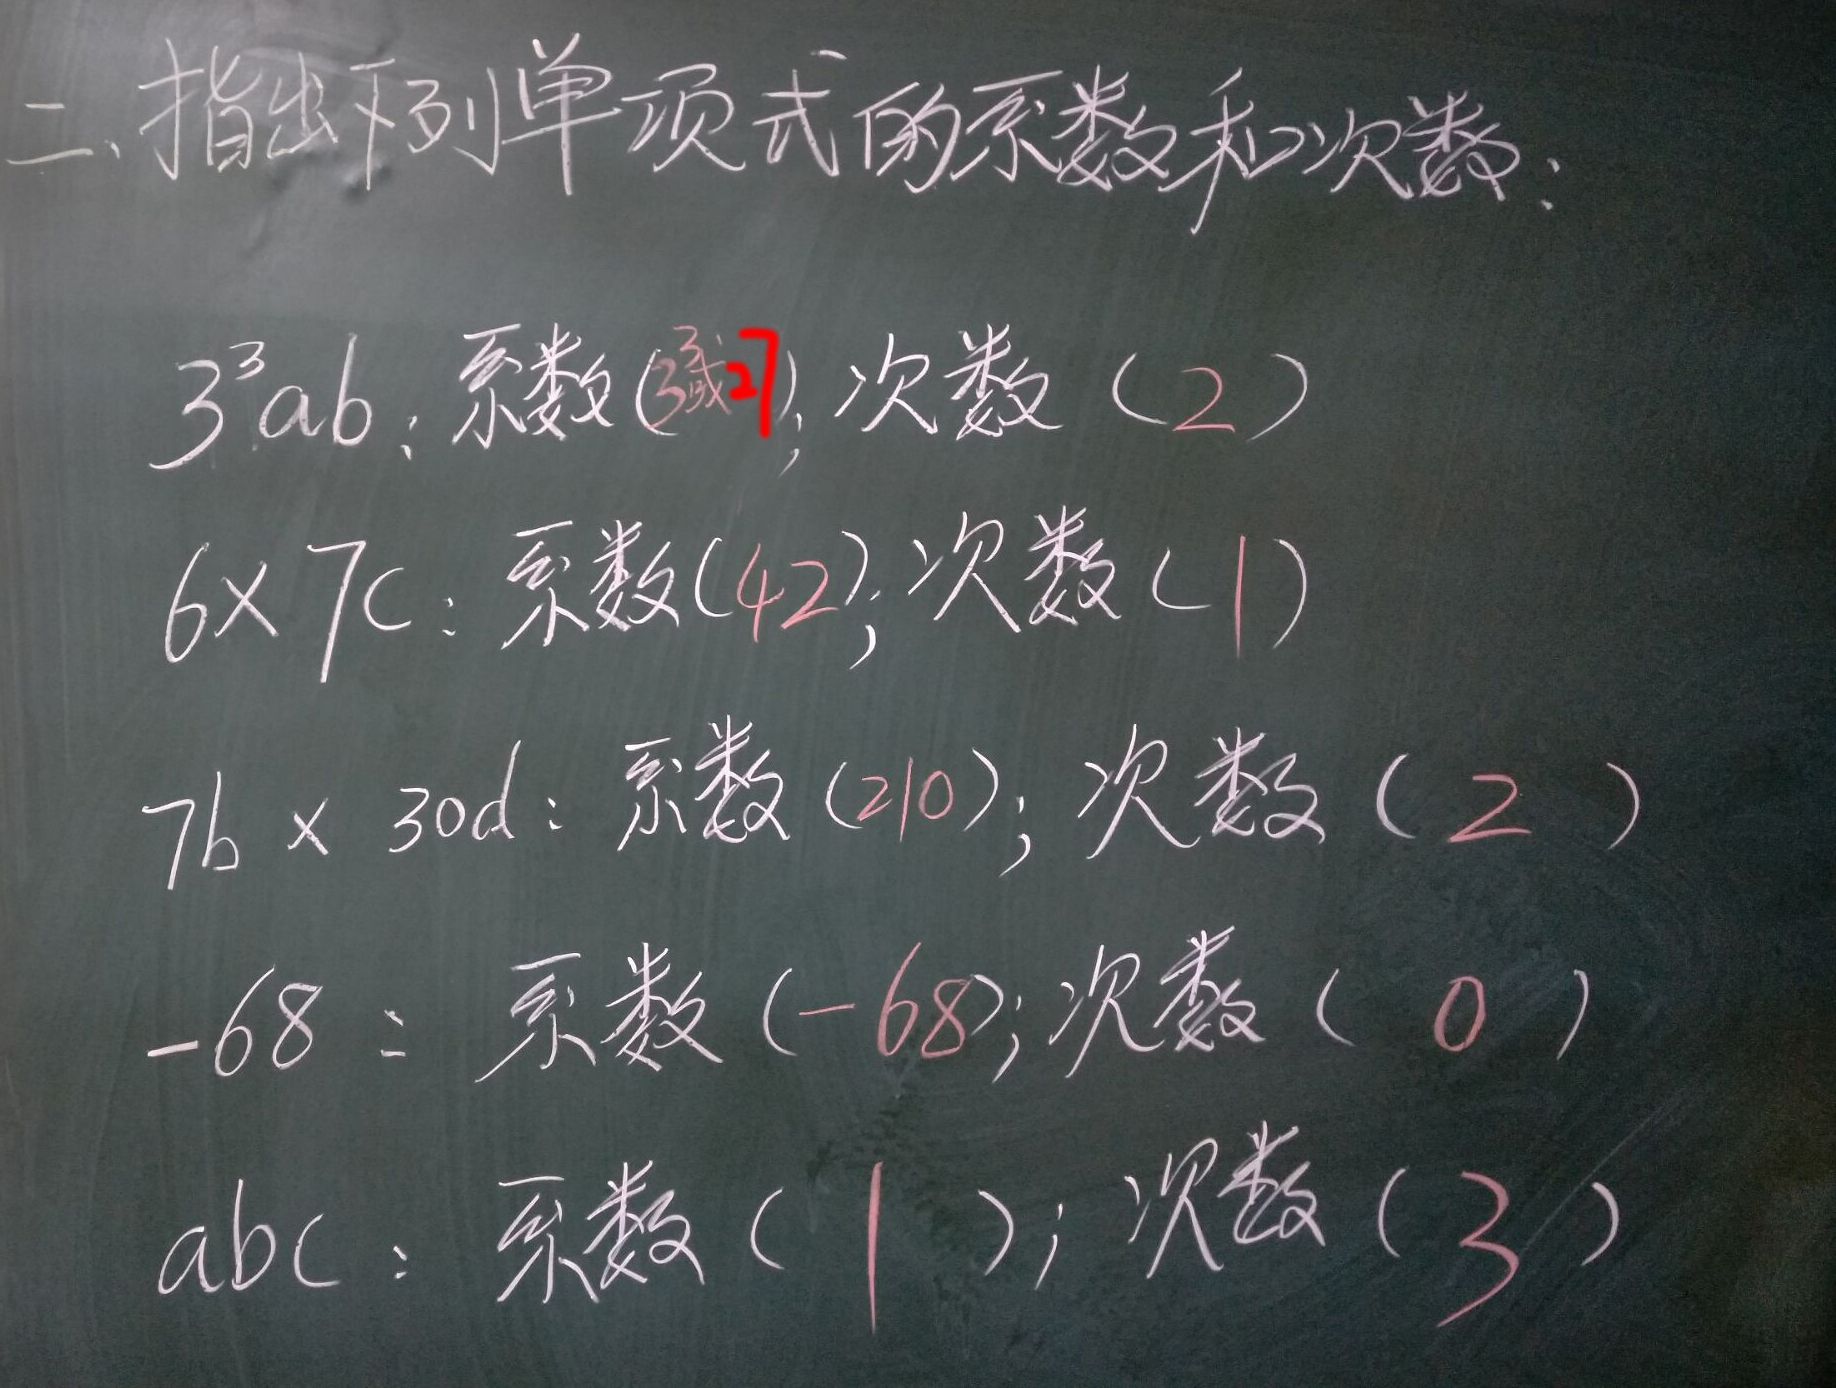 二、指出下列单项式的系数和次数:
3³ab:系数(3³或27);次数(2)
6×7c:系数(42);次数(1)
7b×30d:系数(210);次数(2)
-68:系数(-68);次数(0)
abc:系数(1);次数(3)